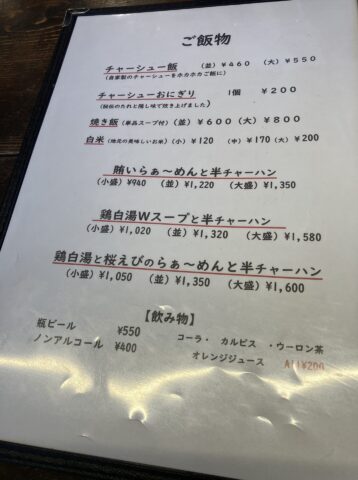 ご飯物
チャーシュー飯 (並)¥460 (大)¥550
(自家製のチャーシューをホカホカご飯に)
チャーシューおにぎり 1個 ¥200
(秘伝のたれと隠し味で炊き上げました)
焼き飯(単品スープ付)(並)¥600(大)¥800
白米(地元の美味しいお米)(小)¥120 (中)¥170(大)¥200
賄いらぁ〜めんと半チャーハン
(小盛)¥940 (並)¥1,220 (大盛)¥1,350
鶏白湯Wスープと半チャーハン
(小盛)¥1,020 (並)¥1,320 (大盛)¥1,580
鶏白湯と桜えびのらぁ〜めんと半チャーハン
(小盛)¥1,050 (並)¥1,350 (大盛)¥1,600
【飲み物】
瓶ビール ¥550
ノンアルコール ¥400
コーラ・ カルピス ・ウーロン茶
オレンジジュース All¥200